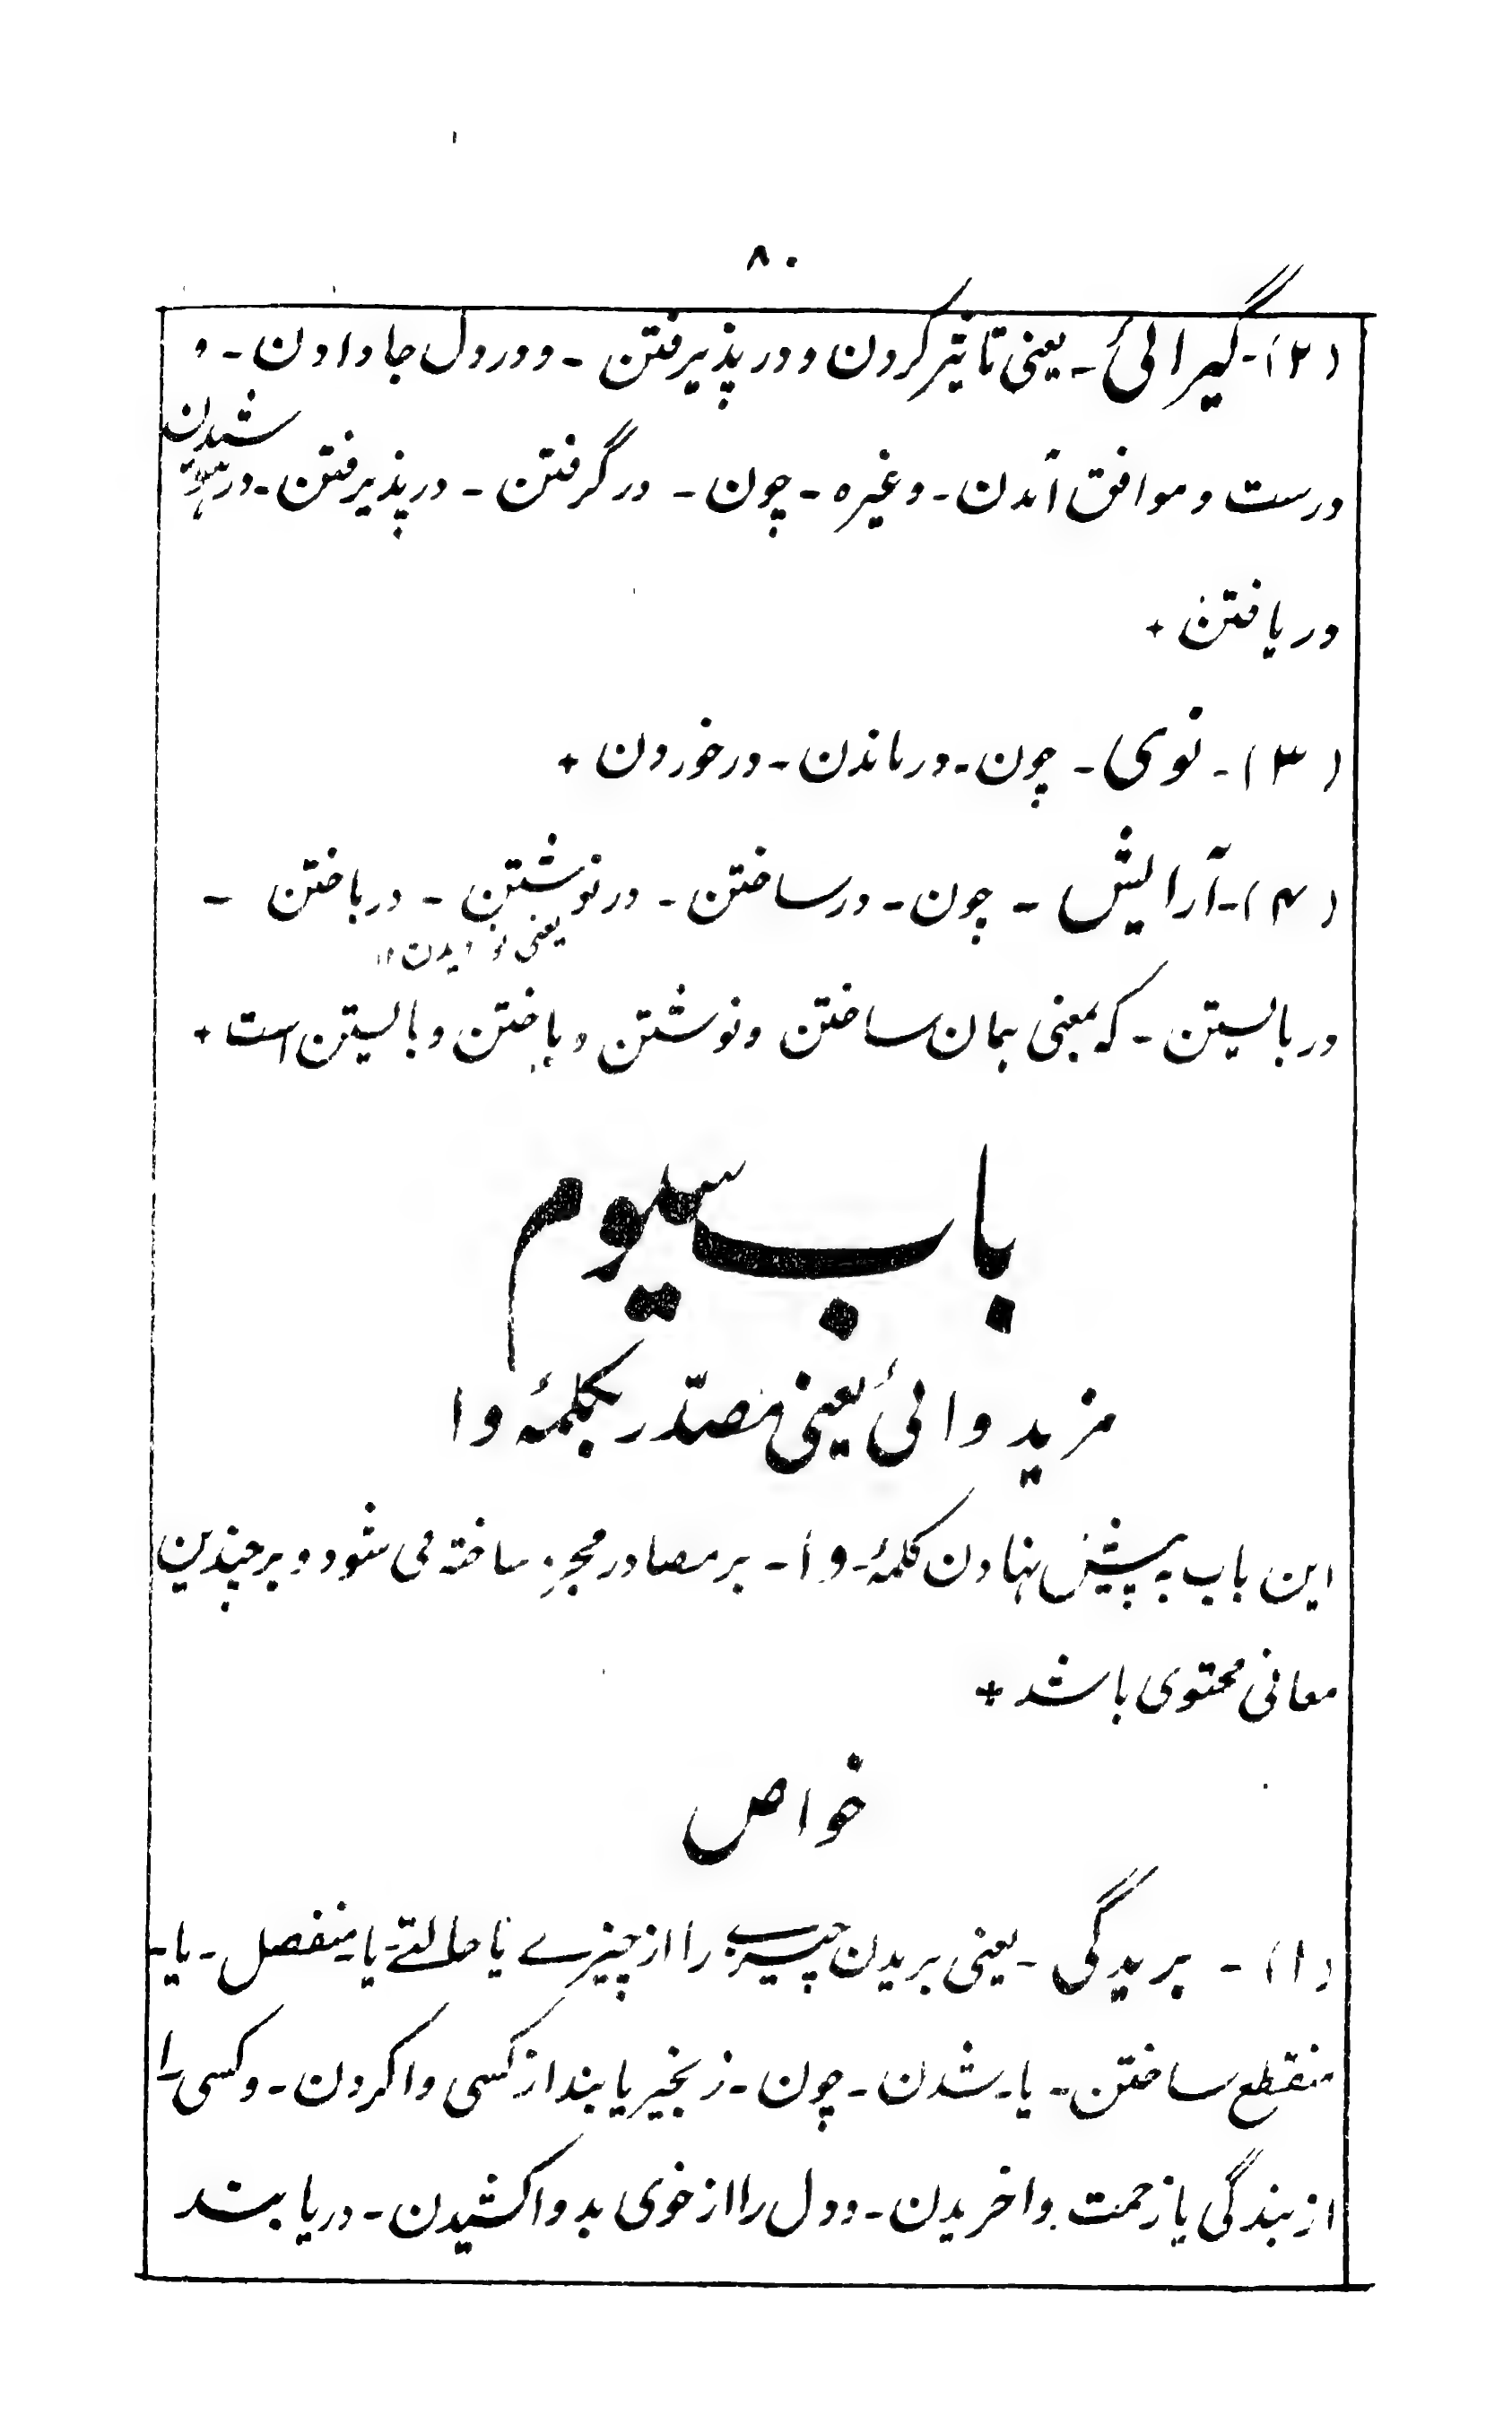 ۸۰
(۲)-گیرائی- یعنی تاثیر کردن و در پذیرفتن - و در دل جا دادن - و
درست و موافق آمدن - وغیره - چون - در گرفتن - در پذیرفتن - در نیوشیدن
دریافتن +
(۳)- نوی - چون - درماندن - درخوردن +
(۴)-آرایش - چون - درساختن - درنوشتن - درباختن -
یعنی
دربایستن - که بمعنی همان ساختن و نوشتن و باختن و بایستن است +
باب سیوم
مزید وائی یعنی مصدّر بکلمۂ وا
این باب به پیش نهادن کلمۂ - وا - بر مصادر مجرد ساخته می شود و بر چندین
معانی محتوی باشد +
خواص
(۱) - بریدگی - یعنی بریدن چیزے را از چیزے یا حالتے - یا - منفصل - یا -
منقطع ساختن - یا - شدن - چون - زنجیر یا بند از کسی وا کردن - و کسی را
از بندگی یا زحمت وا خریدن - و دل را از خوی بد وا کشیدن - در یا بند